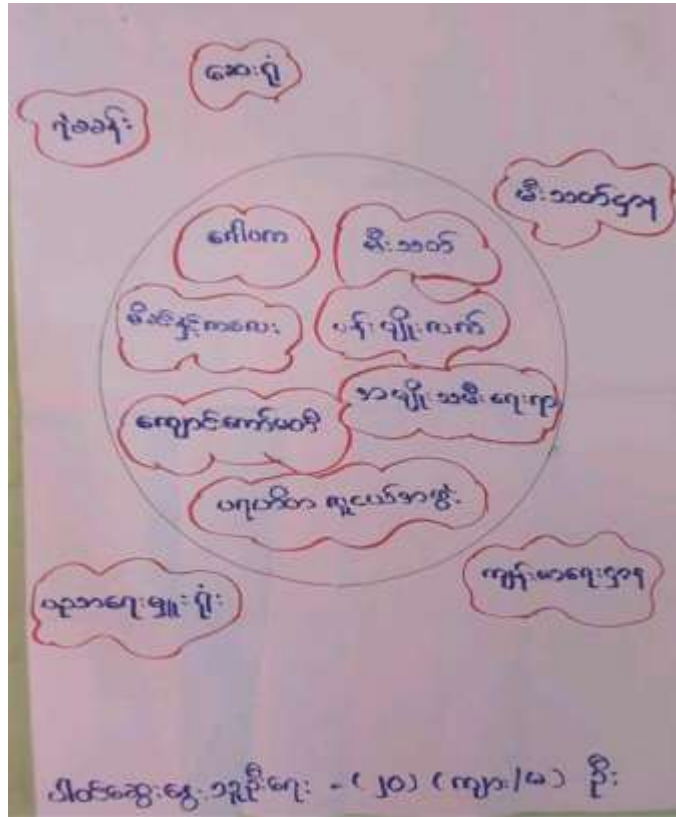 ဆေးရုံ
ရဲစခန်း
မီးသတ်ဌာန
ဂေါပက
မီးသတ်
မိခင်နှင့်ကလေး
ပန်းပျိုးလက်
အမျိုးသမီးရေးရာ
ကျောင်းကော်မတီ
ပရဟိတ လူငယ်အဖွဲ့
ပညာရေးမှူးရုံး
ကျန်းမာရေးဌာန
ပါဝင်ဆွေးနွေးသူဦးရေ - (၂၀) (ကျား/မ) ဦး